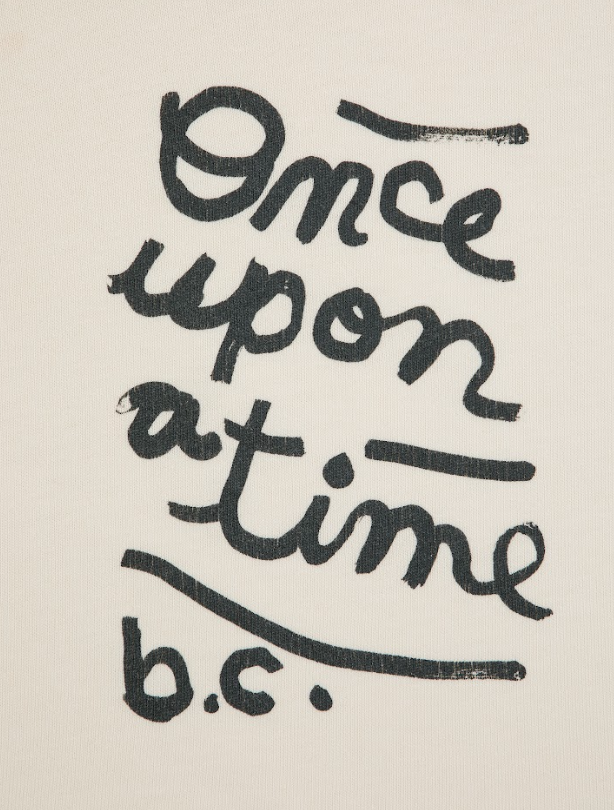 Once
upon
a time
b.c.